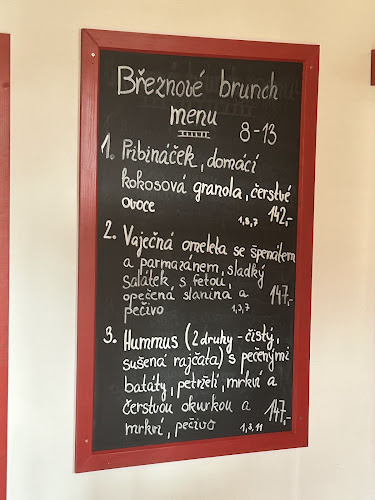 Březnové brunch
menu 8-13
1. Pribináček, domácí
kokosová granola, čerstvé
ovoce 1,8,7 142,-
2. Vaječná omeleta se špenátem
a parmazánem, sladký
salátek s fetou,
opečená slanina a 147,-
pečivo 1,3,7
3. Hummus (2 druhy - čistý,
sušená rajčata) s pečenými
batáty, petrželí, mrkví a
čerstvou okurkou a 147,-
mrkví, pečivo 1,3,11